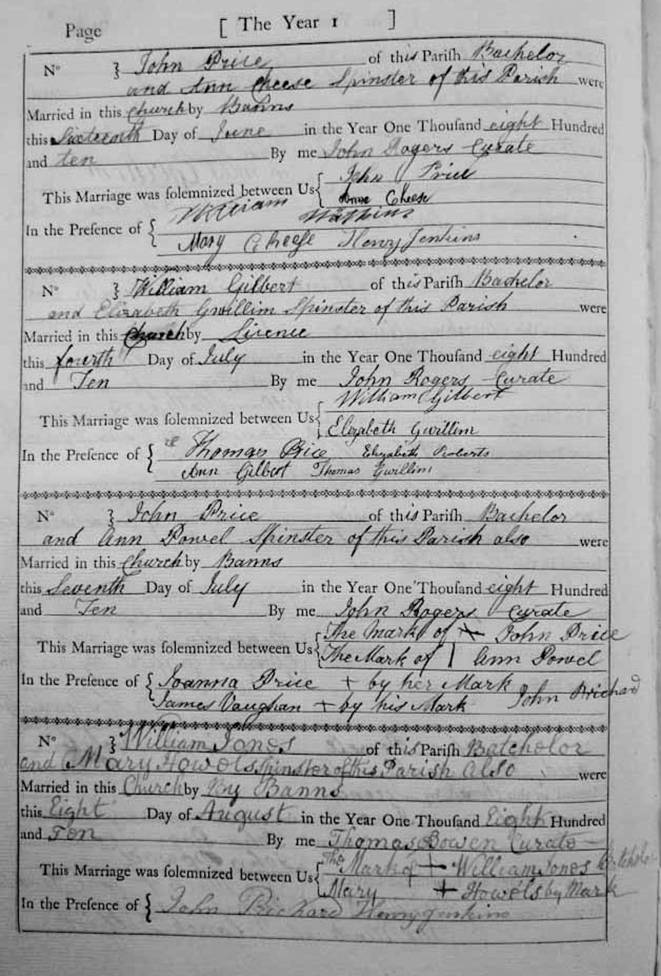 Page [ The Year 1 ]
No } John Price of this Parish Bachelor
and Ann Cheese Spinster of this Parish were
Married in this Church by Banns
this Sixteenth Day of June in the Year One Thousand eight Hundred
and ten By me John Rogers Curate
This Marriage was solemnized between Us { John Price
Ann Cheese
In the Presence of { William Watkins
Mary Cheese Henry Jenkins
No } William Gilbert of this Parish Bachelor
and Elizabeth Gwillim Spinster of this Parish were
Married in this Church by Licence
this fourth Day of July in the Year One Thousand eight Hundred
and Ten By me John Rogers Curate
This Marriage was solemnized between Us { William Gilbert
Elizabeth Gwillim
In the Presence of { Thomas Price Elizabeth Roberts
Ann Gilbert Thomas Gwillim
No } John Price of this Parish Bachelor
and Ann Powel Spinster of this Parish also were
Married in this Church by Banns
this Seventh Day of July in the Year One Thousand eight Hundred
and Ten By me John Rogers Curate
This Marriage was solemnized between Us { The Mark of + John Price
The Mark of | Ann Powel
In the Presence of { Joanna Price + by her Mark John Prichard
James Vaughan + by his Mark
No } William Jones of this Parish Batchelor
and Mary Howels Spinster of this Parish Also were
Married in this Church by By Banns
this Eight Day of August in the Year One Thousand Eight Hundred
and Ten By me Thomas Bowen Curate
This Marriage was solemnized between Us { The Mark of + William Jones
Mary + Howels by Mark
In the Presence of { John Prichard Henry Jenkins